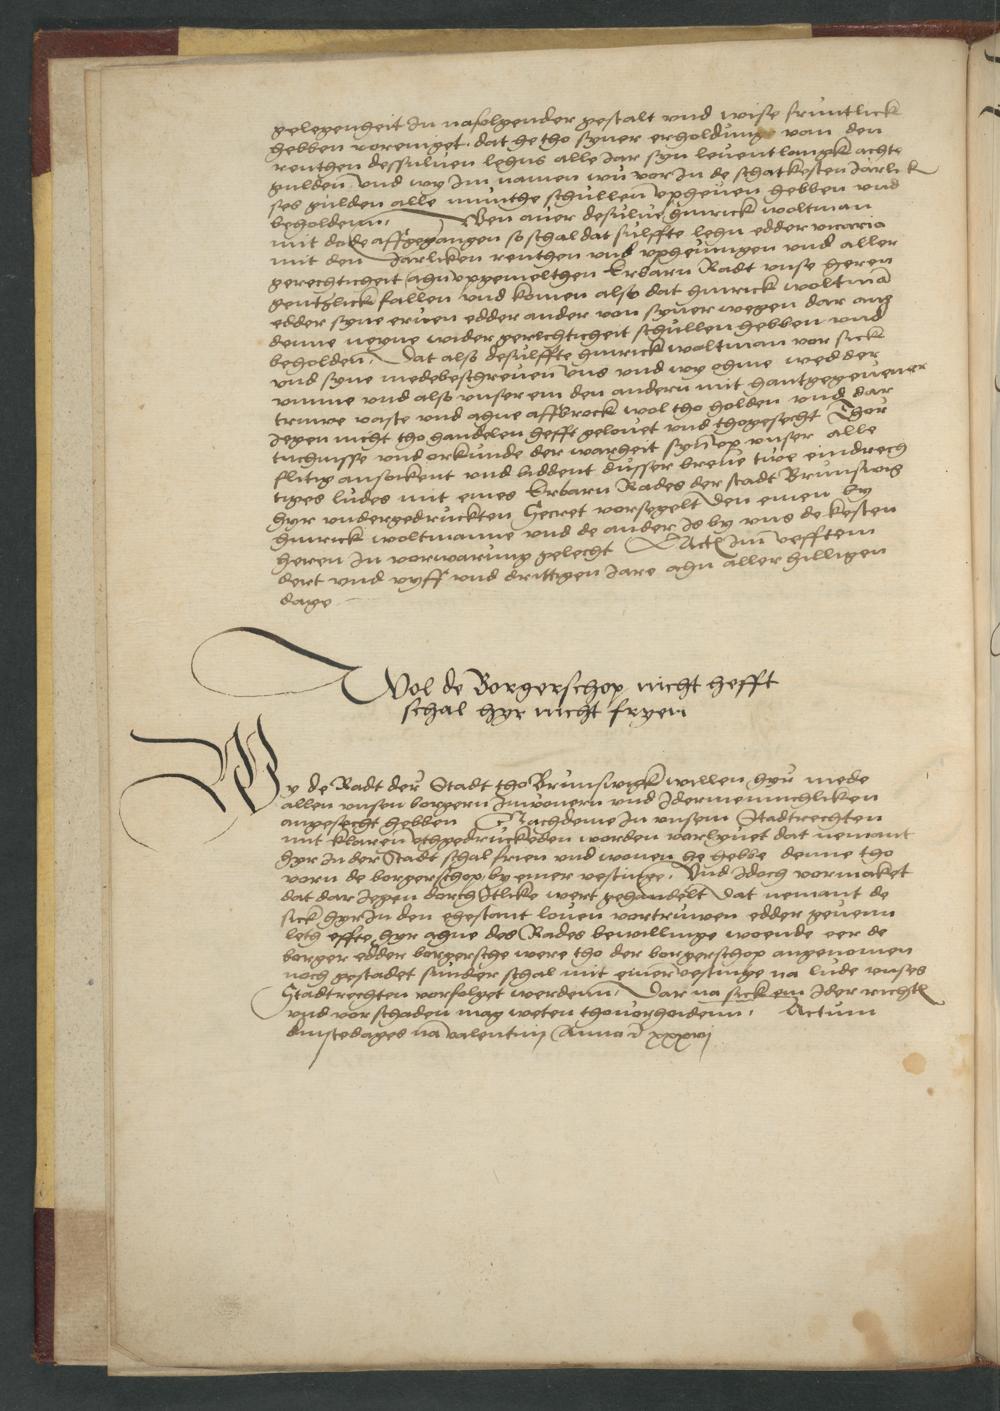 gelegenheit in nafolgender gestalt vnd wise fruntlick
hebben voreniget. dat he tho syner erholdunge van den
renthen dessuluen lehns alle Jar syn leuentlangk achte
gulden vnd wy Im namen wu vor in de schatkesten Jarlick
ses gulden alle munthe schullen vpheuen hebben vnd
beholdenn. Wen auer desulue hinrick woltman
mit dode affgegangen so schal dat sulffte lehn edder vicaria
mit den Jarliken renthen vnd vpheuingen vnd aller
gerechticheit ahn vpgemelthen Erbarn Radt vnse heren
gentzlick fallen vnd komen also dat hinrick woltman
edder syne eruen edder ander von syner wegen dar ane
denne neyne wider gerechticheit schullen hebben vnd
beholden. Dat also desulffte hinrick woltman vor sick
vnd syne medebeschreuen vns vnd wy ohme wedder
vmme vnd also vnser ein den andern mit hantgegeuener
truwe vaste vnd ahne affbrock wol tho holden vnd dar
Jegen nicht tho handelen hefft gelouet vnd thogesecht Thor
tuchnisse vnd orkunde der warheit syn vp vnser alle
flitig ansokent vnd biddent dusser breue twe eindrech
tiges ludes mit eines Erbarn Rades der stadt Brunswig
hyr vndergedruckten Secret vorsegelt den einen by
hinrick woltmanne vnd de ander is by vns de kesten
heren in vorwarung gelecht Actum im veffteim
dert vnd vyff vnd drittigen Jare ahn aller hilligen
dage
Wol de Borgerschop nicht hefft
schal hyr nicht fryen
Wy de Radt der Stadt tho Brunswigk willen hyr mede
allen vnsen borgern Inwonern vnd Idermennichliken
angesecht hebben Nachdeme in vnsem Stadtrechten
mit klaren vthgedruckeden worden vorlyuet dat nemant
hyr in der Stadt schal frien vnd wonen he hebbe denne tho
vorn de borgerschop by einer vestinge. Vnd Idoch vormarket
dat dar Jegen dorch Itlike wert gehandelt dat nemant de
sick hyr in den ehestant louen vortruwen edder geuenn
leth effte hyr ahne des Rades bewillinge wonde eer de
borger edder borgersche were tho der borgerschop angenomen
noch gestadet sunder schal mit einer vestinge na lude vnses
Stadtrechten vorfolget werdenn. Dar na sick ein Ider richten
vnd vor schaden mag weten thouorhoidenn. Actum
dinstedages na Valentinj Anno xxxvj